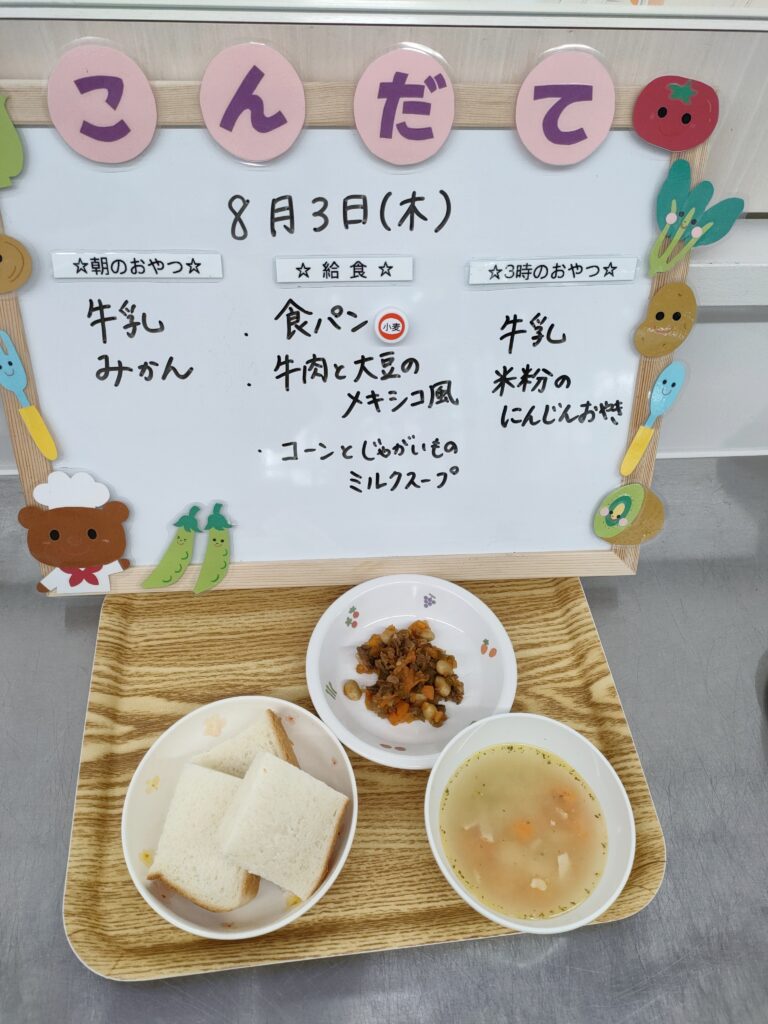 こんだて
8月3日(木)
☆朝のおやつ☆
牛乳
みかん
☆ 給 食 ☆
・食パン 小麦
・牛肉と大豆の
メキシコ風
・コーンとじゃがいもの
ミルクスープ
☆3時のおやつ☆
牛乳
米粉の
にんじんおやき